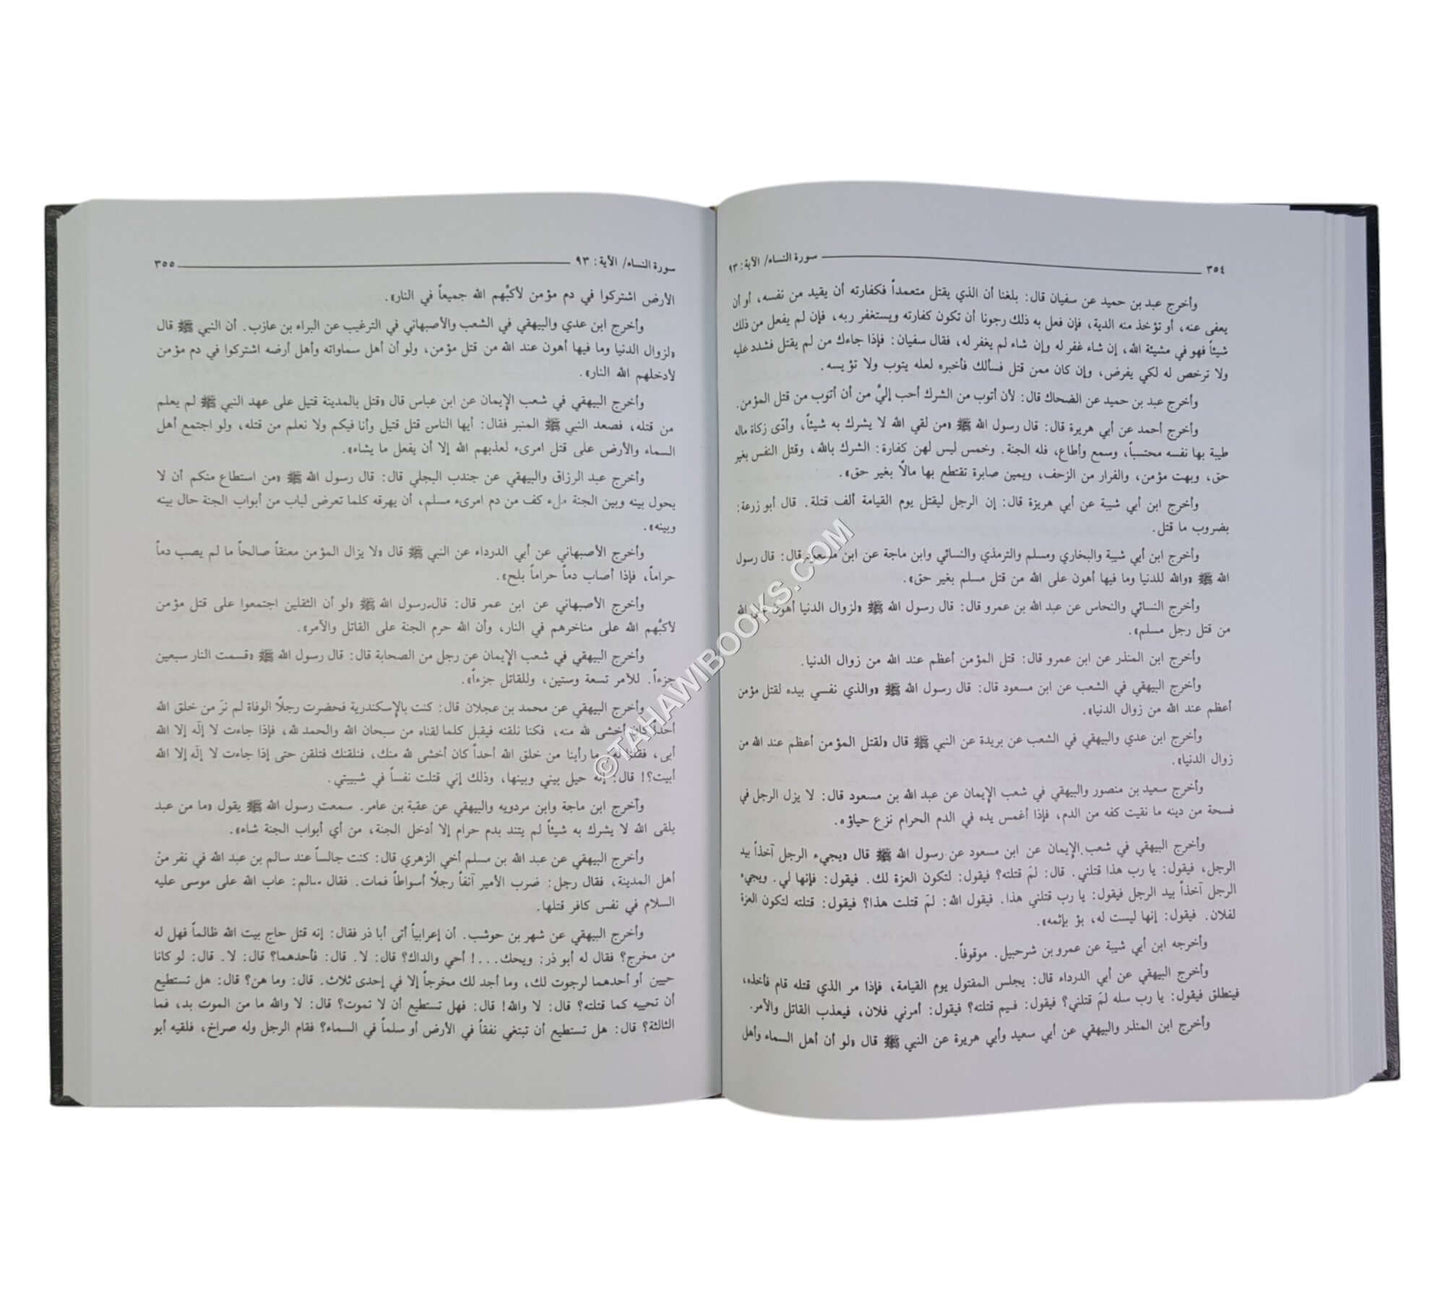 ٣٥٤ سورة النساء/ الآية: ٩٣
وأخرج عبد بن حميد عن سفيان قال: بلغنا أن الذي يقتل متعمداً فكفارته أن يقيد من نفسه، أو أن
يعفى عنه، أو تؤخذ منه الدية، فإن فعل به ذلك رجونا أن تكون كفارته ويستغفر ربه، فإن لم يفعل من ذلك
شيئاً فهو في مشيئة الله، إن شاء غفر له وإن شاء لم يغفر له، فقال سفيان: فإذا جاءك من لم يقتل فشدد عليه
ولا ترخص له لكي يفرض، وإن كان ممن قتل فسألك فأخبره لعله يتوب ولا تؤيسه.
وأخرج عبد بن حميد عن الضحاك قال: لأن أتوب من الشرك أحب إليَّ من أن أتوب من قتل المؤمن.
وأخرج أحمد عن أبي هريرة قال: قال رسول الله ﷺ «من لقي الله لا يشرك به شيئاً، وأدّى زكاة ماله
طيبة بها نفسه محتسباً، وسمع وأطاع، فله الجنة. وخمس ليس لهن كفارة: الشرك بالله، وقتل النفس بغير
حق، وبهت مؤمن، والفرار من الزحف، ويمين صابرة تقتطع بها مالاً بغير حق».
وأخرج ابن أبي شيبة عن أبي هريرة قال: إن الرجل ليقتل يوم القيامة ألف قتلة. قال أبو زرعة:
بضروب ما قتل.
وأخرج ابن أبي شيبة والبخاري ومسلم والترمذي والنسائي وابن ماجة عن ابن مسعود قال: قال رسول
الله ﷺ «والله للدنيا وما فيها أهون على الله من قتل مسلم بغير حق».
وأخرج النسائي والنحاس عن عبد الله بن عمرو قال: قال رسول الله ﷺ «لزوال الدنيا أهون على الله
من قتل رجل مسلم».
وأخرج ابن المنذر عن ابن عمرو قال: قتل المؤمن أعظم عند الله من زوال الدنيا.
وأخرج البيهقي في الشعب عن ابن مسعود قال: قال رسول الله ﷺ «والذي نفسي بيده لقتل مؤمن
أعظم عند الله من زوال الدنيا».
وأخرج ابن عدي والبيهقي في الشعب عن بريدة عن النبي ﷺ قال «لقتل المؤمن أعظم عند الله من
زوال الدنيا».
وأخرج سعيد بن منصور والبيهقي في شعب الإيمان عن عبد الله بن مسعود قال: لا يزل الرجل في
فسحة من دينه ما نقيت كفه من الدم، فإذا أغمس يده في الدم الحرام نزع حياؤه.
وأخرج البيهقي في شعب الإيمان عن ابن مسعود عن رسول الله ﷺ قال «يجيء الرجل آخذاً بيد
الرجل، فيقول: يا رب هذا قتلني. قال: لمَ قتلته؟ فيقول: لتكون العزة لك. فيقول: فإنها لي. ويجيء
الرجل آخذاً بيد الرجل فيقول: يا رب قتلني هذا. فيقول الله: لمَ قتلت هذا؟ فيقول: قتلته لتكون العزة
لفلان. فيقول: إنها ليست له، بؤ بإثمه».
وأخرجه ابن أبي شيبة عن عمرو بن شرحبيل. موقوفاً.
وأخرج البيهقي عن أبي الدرداء قال: يجلس المقتول يوم القيامة، فإذا مر الذي قتله قام فأخذه،
فينطلق فيقول: يا رب سله لمَ قتلني؟ فيقول: فيم قتلته؟ فيقول: أمرني فلان، فيعذب القاتل والآمر.
وأخرج ابن المنذر والبيهقي عن أبي سعيد وأبي هريرة عن النبي ﷺ قال «لو أن أهل السماء وأهل
سورة النساء/ الآية: ٩٣ ٣٥٥
الأرض اشتركوا في دم مؤمن لأكبَّهم الله جميعاً في النار».
وأخرج ابن عدي والبيهقي في الشعب والأصبهاني في الترغيب عن البراء بن عازب. أن النبي ﷺ قال
«لزوال الدنيا وما فيها أهون عند الله من قتل مؤمن، ولو أن أهل سماواته وأهل أرضه اشتركوا في دم مؤمن
لأدخلهم الله النار».
وأخرج البيهقي في شعب الإيمان عن ابن عباس قال «قتل بالمدينة قتيل على عهد النبي ﷺ لم يعلم
من قتله، فصعد النبي ﷺ المنبر فقال: أيها الناس قتل قتيل وأنا فيكم ولا نعلم من قتله، ولو اجتمع أهل
السماء والأرض على قتل امرىء لعذبهم الله إلا أن يفعل ما يشاء».
وأخرج عبد الرزاق والبيهقي عن جندب البجلي قال: قال رسول الله ﷺ «من استطاع منكم أن لا
يحول بينه وبين الجنة ملء كف من دم امرىء مسلم، أن يهرقه كلما تعرض لباب من أبواب الجنة حال بينه
وبينه».
وأخرج الأصبهاني عن أبي الدرداء عن النبي ﷺ قال «لا يزال المؤمن معنقاً صالحاً ما لم يصب دماً
حراماً، فإذا أصاب دماً حراماً بلح».
وأخرج الأصبهاني عن ابن عمر قال: قال رسول الله ﷺ «لو أن الثقلين اجتمعوا على قتل مؤمن
لأكبَّهم الله على مناخرهم في النار، وأن الله حرم الجنة على القاتل والآمر».
وأخرج البيهقي في شعب الإيمان عن رجل من الصحابة قال: قال رسول الله ﷺ «قسمت النار سبعين
جزءاً. للآمر تسعة وستين، وللقاتل جزءاً».
وأخرج البيهقي عن محمد بن عجلان قال: كنت بالإسكندرية فحضرت رجلاً الوفاة لم نرَ من خلق الله
أحداً كان أخشى لله منه، فكنا نلقنه فيقبل كلما لقناه من سبحان الله والحمد لله، فإذا جاءت لا إله إلا الله
أبى، فقلنا له: ما رأينا من خلق الله أحداً كان أخشى لله منك، فنلقنك فتلقن حتى إذا جاءت لا إله إلا الله
أبيت؟! قال: إنه حيل بيني وبينها، وذلك إني قتلت نفساً في شبيبتي.
وأخرج ابن ماجة وابن مردويه والبيهقي عن عقبة بن عامر. سمعت رسول الله ﷺ يقول «ما من عبد
يلقى الله لا يشرك به شيئاً لم يتند بدم حرام إلا أدخل الجنة، من أي أبواب الجنة شاء».
وأخرج البيهقي عن عبد الله بن مسلم أخي الزهري قال: كنت جالساً عند سالم بن عبد الله في نفر من
أهل المدينة، فقال رجل: ضرب الأمير آنفاً رجلاً أسواطاً فمات. فقال سالم: عاب الله على موسى عليه
السلام في نفس كافر قتلها.
وأخرج البيهقي عن شهر بن حوشب. أن إعرابياً أتى أبا ذر فقال: إنه قتل حاج بيت الله ظالماً فهل له
من مخرج؟ فقال له أبو ذر: ويحك...! أحي والداك؟ قال: لا. قال: فأحدهما؟ قال: لا. قال: لو كانا
حيين أو أحدهما لرجوت لك، وما أجد لك مخرجاً إلا في إحدى ثلاث. قال: وما هن؟ قال: هل تستطيع
أن تحييه كما قتلته؟ قال: لا والله! قال: فهل تستطيع أن لا تموت؟ قال: لا والله ما من الموت بد، فما
الثالثة؟ قال: هل تستطيع أن تبتغي نفقاً في الأرض أو سلماً في السماء؟ فقام الرجل وله صراخ، فلقيه أبو
©TAHAWIBOOKS.COM